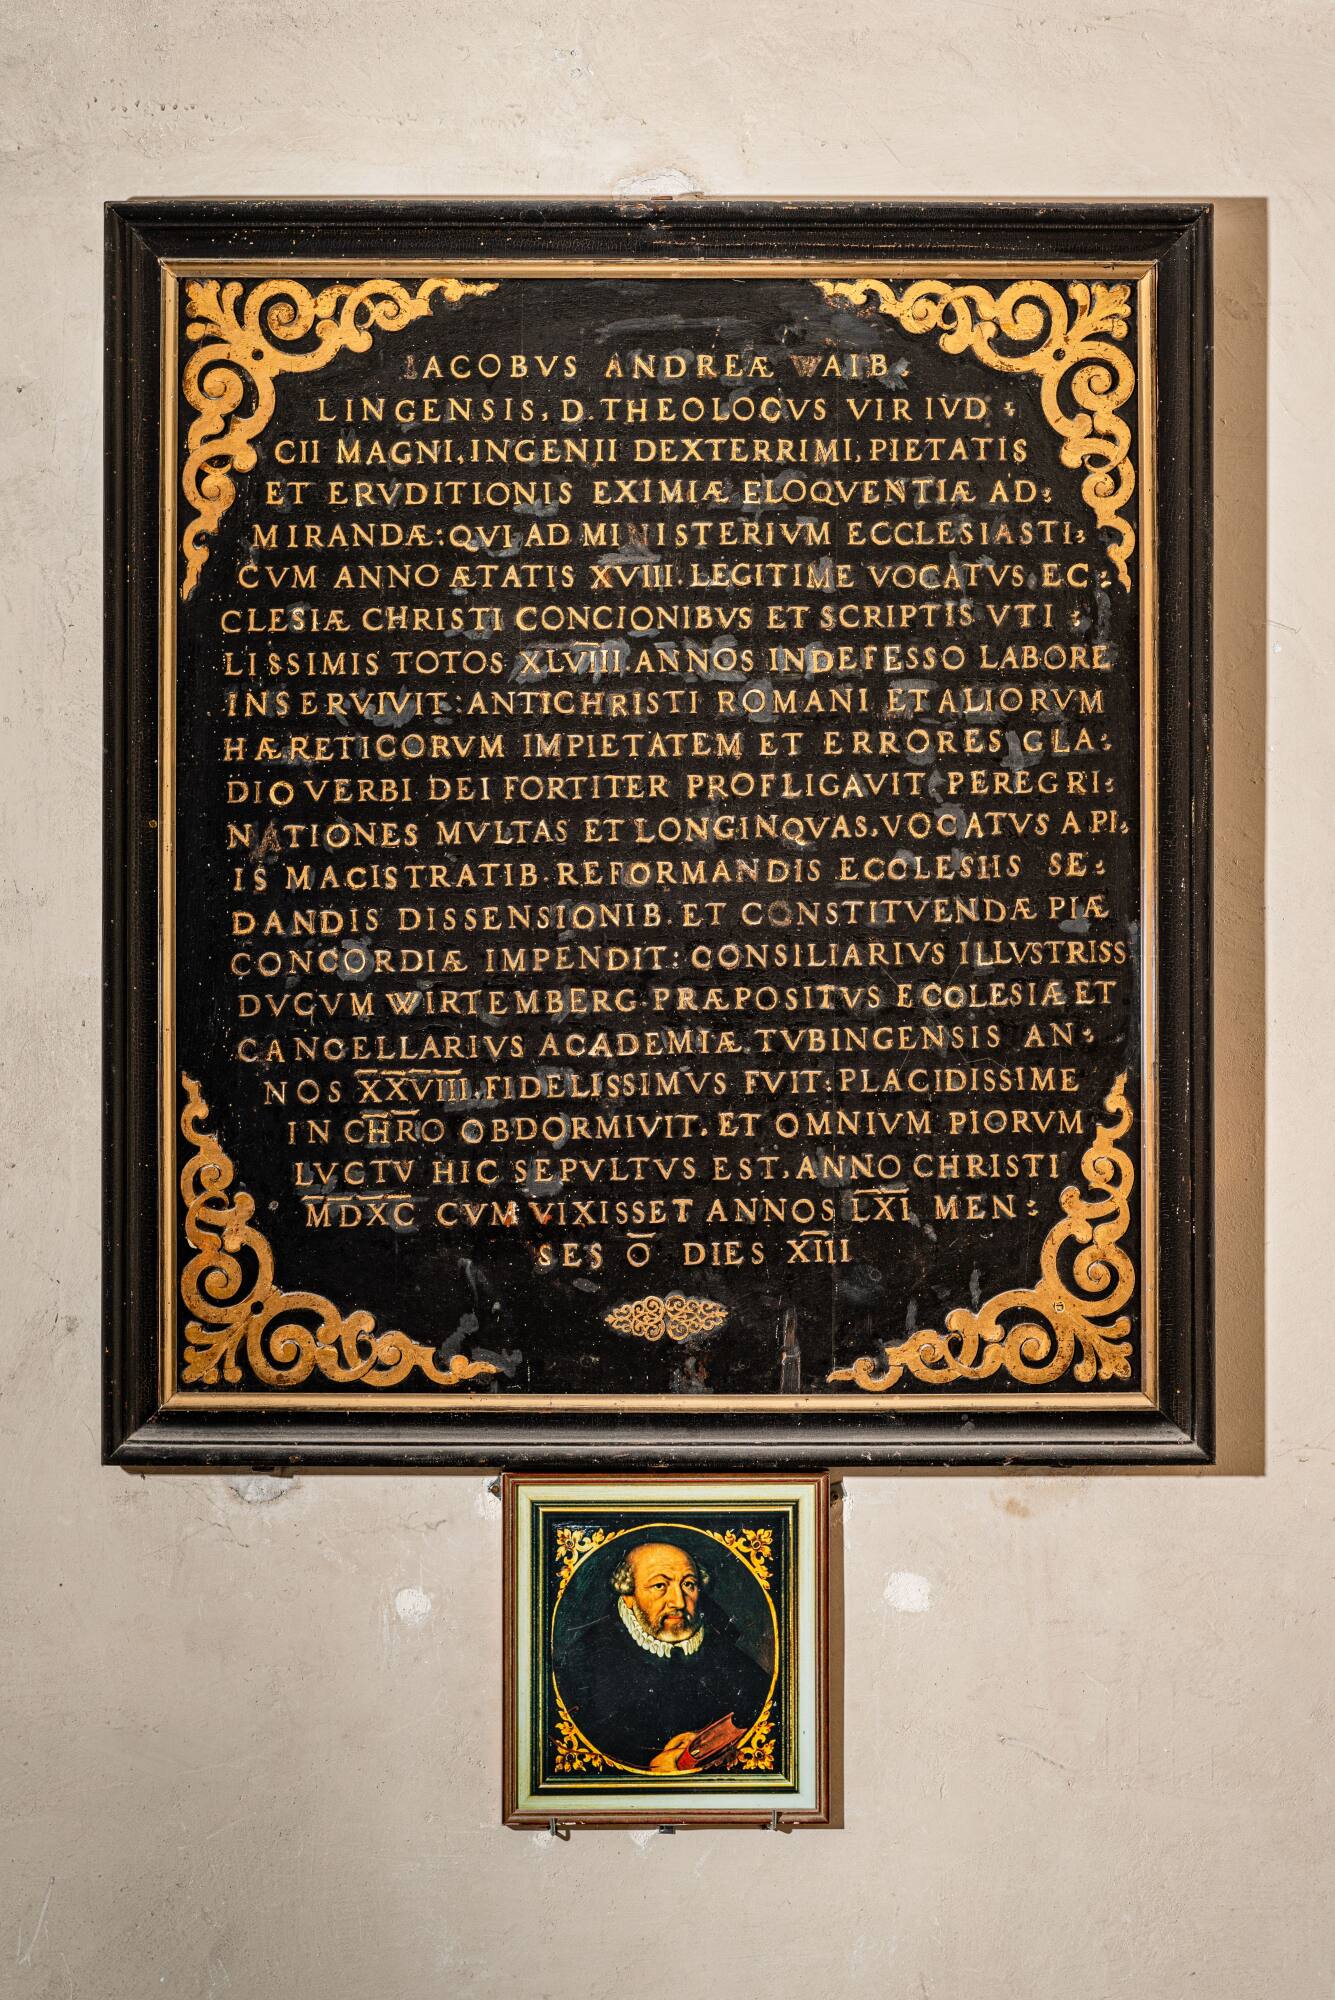 IACOBVS ANDREÆ WAIB:
LINGENSIS, D. THEOLOGVS VIR IVD:
CII MAGNI, INGENII DEXTERRIMI, PIETATIS
ET ERVDITIONIS EXIMIÆ ELOQVENTIÆ AD:
MIRANDÆ: QVI AD MINISTERIVM ECCLESIASTI:
CVM ANNO ÆTATIS XVIII. LEGITIME VOCATVS EC:
CLESIÆ CHRISTI CONCIONIBVS ET SCRIPTIS VTI:
LISSIMIS TOTOS XLVIII ANNOS INDEFESSO LABORE
INSERVIVIT: ANTICHRISTI ROMANI ET ALIORVM
HÆRETICORVM IMPIETATEM ET ERRORES GLA:
DIO VERBI DEI FORTITER PROFLIGAVIT PEREGRI:
NATIONES MVLTAS ET LONGINQVAS, VOCATVS A PI:
IS MAGISTRATIB. REFORMANDIS ECCLESIIS SE:
DANDIS DISSENSIONIB. ET CONSTITVENDÆ PIÆ
CONCORDIÆ IMPENDIT: CONSILIARIVS ILLVSTRISS
DVCVM WIRTEMBERG. PRÆPOSITVS ECCLESIÆ ET
CANCELLARIVS ACADEMIÆ TVBINGENSIS AN:
NOS XXVIII. FIDELISSIMVS FVIT: PLACIDISSIME
IN CHRO OBDORMIVIT. ET OMNIVM PIORVM
LVCTV HIC SEPVLTVS EST, ANNO CHRISTI
MDXC CVM VIXISSET ANNOS LXI MEN:
SES Ō DIES XIII